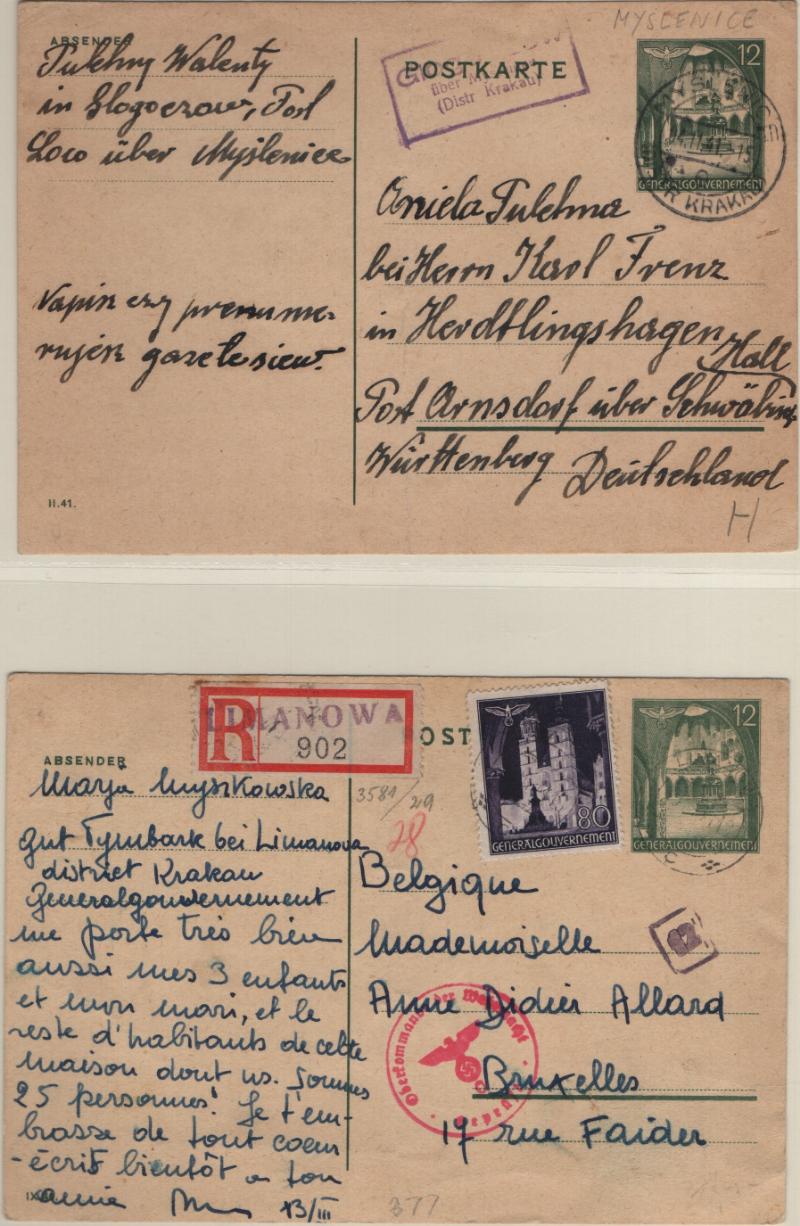 MYŚLENICE
ABSENDER
Tulehny Walenty
in Głogoczow, Post
Loco über Myślenice
Napisz czy prenume-
rujesz gazete siew.
II.41.
über
(Distr Krakau)
POSTKARTE
12
GENERALGOUVERNEMENT
KRAKAU
Aniela Tulehna
bei Herrn Karl Frenz
in Herdtlingshagen
Hall
Post Arnsdorf über Schwäbisch
Württenberg Deutschland
H
R LIMANOWA
902
POST
80
GENERALGOUVERNEMENT
12
GENERALGOUVERNEMENT
ABSENDER
Marja Myszkowska
gut Tymbark bei Limanova
district Krakau
Generalgouvernement
me porte très bien
aussi mes 3 enfants
et mon mari, et le
reste d'habitants de cette
maison dont ns. sommes
25 personnes! Je t'em-
brasse de tout coeur
-écris bientôt a ton
amie 13/III
3581/219
28
Belgique
Mademoiselle
Anne Didier Allard
Bruxelles
17 rue Faider
Oberkommando der Wehrmacht
Geprüft
377